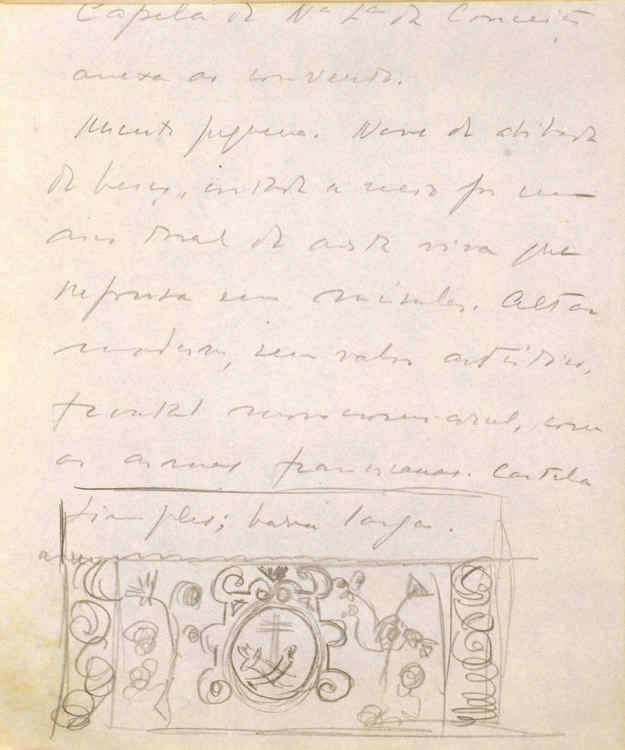 Capela de Nª Sª da Conceição
anexa ao convento.
Muito pequena. Nave de abóbada
de berço, cortada a meio por um
arco toral de aresta viva que
repousa em mísulas. Altar
moderno, sem valor artístico,
frontal monocromo azul, com
as armas franciscanas. Cartela
simples; barra larga.